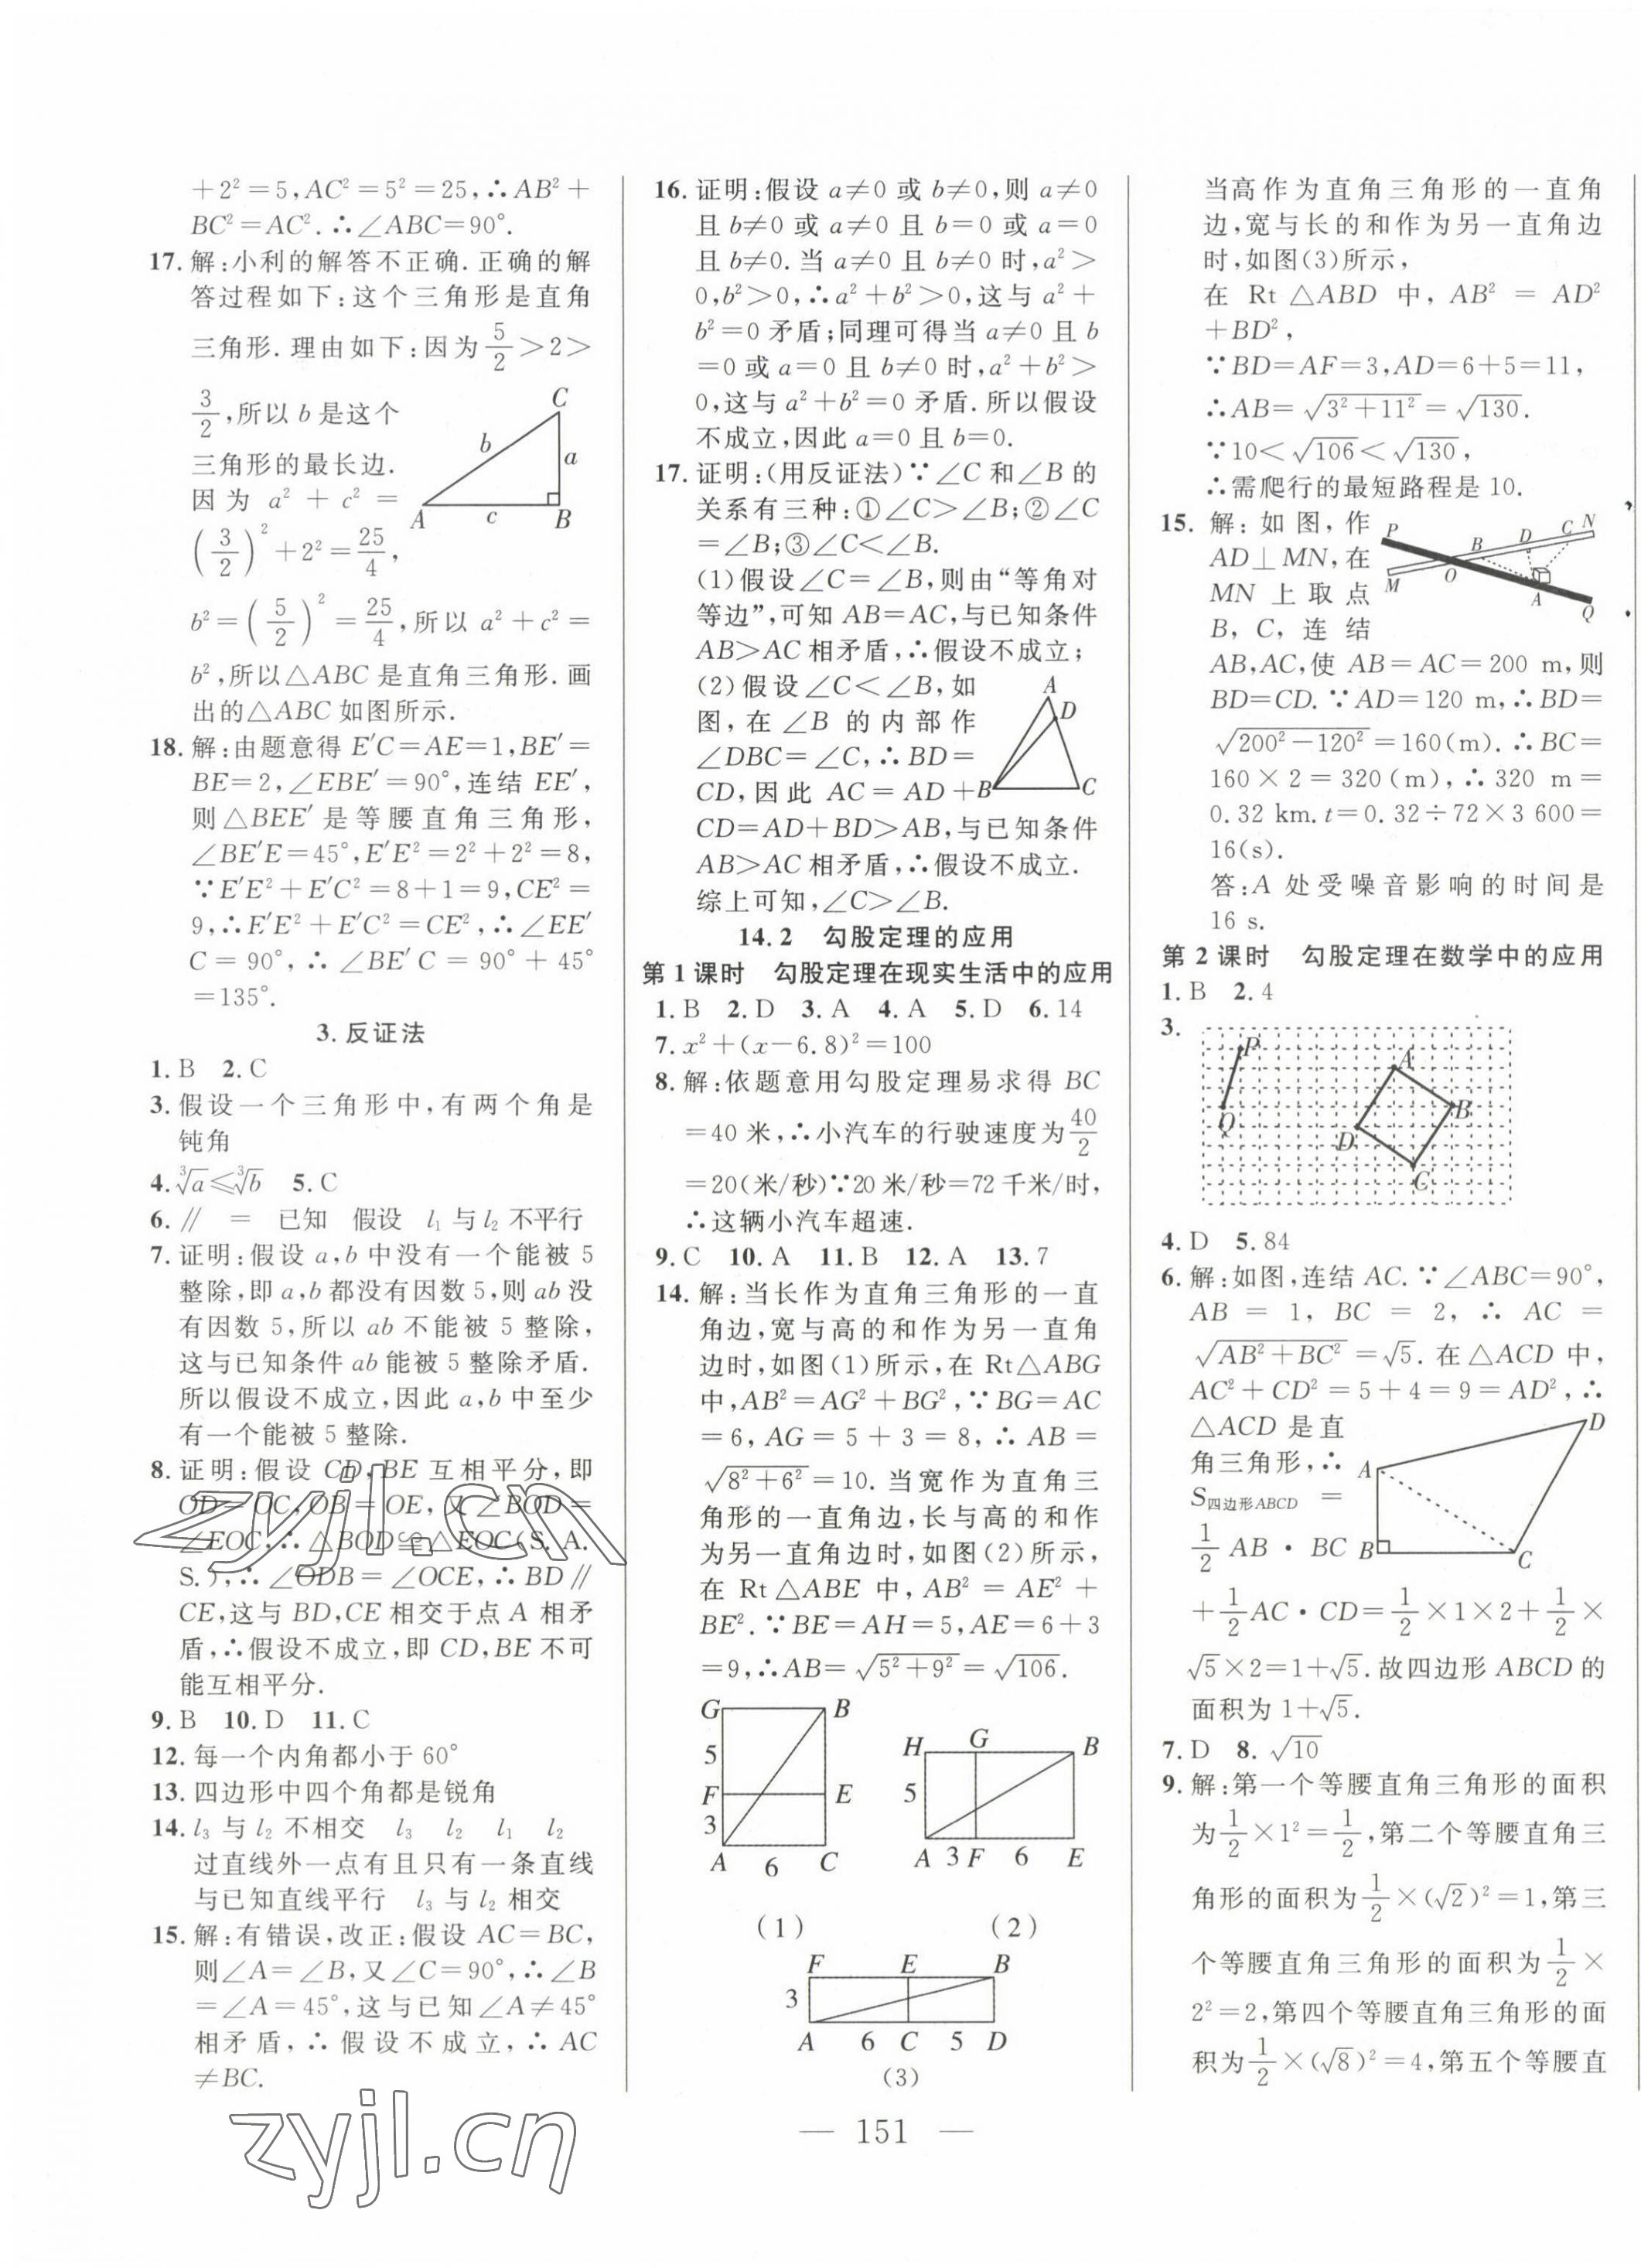 +2²=5,AC²=5²=25,∴AB²+
BC²=AC².∴∠ABC=90°.
17.解:小利的解答不正确.正确的解
答过程如下:这个三角形是直角
三角形.理由如下:因为5/2>2>
3/2,所以b是这个
三角形的最长边.
因为 a²+c²=
(3/2)²+2²=25/4,
b²=(5/2)²=25/4,所以a²+c²=
b²,所以△ABC是直角三角形.画
出的△ABC如图所示.
C
b
a
A
c
B
18.解:由题意得E′C=AE=1,BE′=
BE=2,∠EBE′=90°,连结EE′,
则△BEE′是等腰直角三角形,
∠BE′E=45°,E′E²=2²+2²=8,
∵E′E²+E′C²=8+1=9,CE²=
9,∴E′E²+E′C²=CE²,∴∠EE′
C=90°,∴∠BE′C=90°+45°
=135°.
3.反证法
1.B 2.C
3.假设一个三角形中,有两个角是
钝角
4.∛a≤∛b 5.C
6.∥ = 已知 假设 l₁与l₂不平行
7.证明:假设a,b中没有一个能被5
整除,即a,b都没有因数5,则ab没
有因数5,所以ab不能被5整除,
这与已知条件ab能被5整除矛盾.
所以假设不成立,因此a,b中至少
有一个能被5整除.
8.证明:假设CD,BE互相平分,即
OD=OC,OB=OE,又∠BOD=
∠EOC,∴△BOD≌△EOC(S.A.
S.),∴∠ODB=∠OCE,∴BD∥
CE,这与BD,CE相交于点A相矛
盾,∴假设不成立,即CD,BE不可
能互相平分.
9.B 10.D 11.C
12.每一个内角都小于60°
13.四边形中四个角都是锐角
14.l₃与l₂不相交 l₃ l₂ l₁ l₂
过直线外一点有且只有一条直线
与已知直线平行 l₃与l₂相交
15.解:有错误,改正:假设AC=BC,
则∠A=∠B,又∠C=90°,∴∠B
=∠A=45°,这与已知∠A≠45°
相矛盾,∴假设不成立,∴AC
≠BC.
16.证明:假设a≠0或b≠0,则a≠0
且b≠0或a≠0且b=0或a=0
且b≠0.当a≠0且b≠0时,a²>
0,b²>0,∴a²+b²>0,这与a²+
b²=0矛盾;同理可得当a≠0且b
=0或a=0且b≠0时,a²+b²>
0,这与a²+b²=0矛盾.所以假设
不成立,因此a=0且b=0.
17.证明:(用反证法)∵∠C和∠B的
关系有三种:①∠C>∠B;②∠C
=∠B;③∠C<∠B.
(1)假设∠C=∠B,则由“等角对
等边”,可知AB=AC,与已知条件
AB>AC相矛盾,∴假设不成立;
(2)假设∠C<∠B,如
图,在∠B的内部作
∠DBC=∠C,∴BD=
CD,因此AC=AD+
CD=AD+BD>AB,与已知条件
AB>AC相矛盾,∴假设不成立.
综上可知,∠C>∠B.
A
D
B
C
14.2 勾股定理的应用
第1课时 勾股定理在现实生活中的应用
1.B 2.D 3.A 4.A 5.D 6.14
7.x²+(x-6.8)²=100
8.解:依题意用勾股定理易求得BC
=40米,∴小汽车的行驶速度为40/2
=20(米/秒)∵20米/秒=72千米/时,
∴这辆小汽车超速.
9.C 10.A 11.B 12.A 13.7
14.解:当长作为直角三角形的一直
角边,宽与高的和作为另一直角
边时,如图(1)所示,在Rt△ABG
中,AB²=AG²+BG²,∵BG=AC
=6,AG=5+3=8,∴AB=
√(8²+6²)=10.当宽作为直角三
角形的一直角边,长与高的和作
为另一直角边时,如图(2)所示,
在Rt△ABE中,AB²=AE²+
BE².∵BE=AH=5,AE=6+3
=9,∴AB=√(5²+9²)=√106.
G B
5
F E
3
A 6 C
(1)
H G B
5
A 3 F 6 E
(2)
F E B
3
A 6 C 5 D
(3)
当高作为直角三角形的一直角
边,宽与长的和作为另一直角边
时,如图(3)所示,
在Rt△ABD中,AB²=AD²
+BD²,
∵BD=AF=3,AD=6+5=11,
∴AB=√(3²+11²)=√130.
∵10<√106<√130,
∴需爬行的最短路程是10.
15.解:如图,作
AD⊥MN,在
MN上取点
B,C,连结
AB,AC,使AB=AC=200 m,则
BD=CD.∵AD=120 m,∴BD=
√(200²-120²)=160(m).∴BC=
160×2=320(m),∴320 m=
0.32 km.t=0.32÷72×3 600=
16(s).
答:A处受噪音影响的时间是
16 s.
P B D C N
M O A Q
第2课时 勾股定理在数学中的应用
1.B 2.4
3.
P
Q
A
B
D
C
4.D 5.84
6.解:如图,连结AC.∵∠ABC=90°,
AB=1,BC=2,∴AC=
√(AB²+BC²)=√5.在△ACD中,
AC²+CD²=5+4=9=AD²,∴
△ACD是直
角三角形,∴
S四边形ABCD=
1/2AB·BC
+1/2AC·CD=1/2×1×2+1/2×
√5×2=1+√5.故四边形ABCD的
面积为1+√5.
D
A
B
C
7.D 8.√10
9.解:第一个等腰直角三角形的面积
为1/2×1²=1/2,第二个等腰直角三
角形的面积为1/2×(√2)²=1,第三
个等腰直角三角形的面积为1/2×
2²=2,第四个等腰直角三角形的面
积为1/2×(√8)²=4,第五个等腰直
— 151 —
zyjl.cn
zyjl.cn